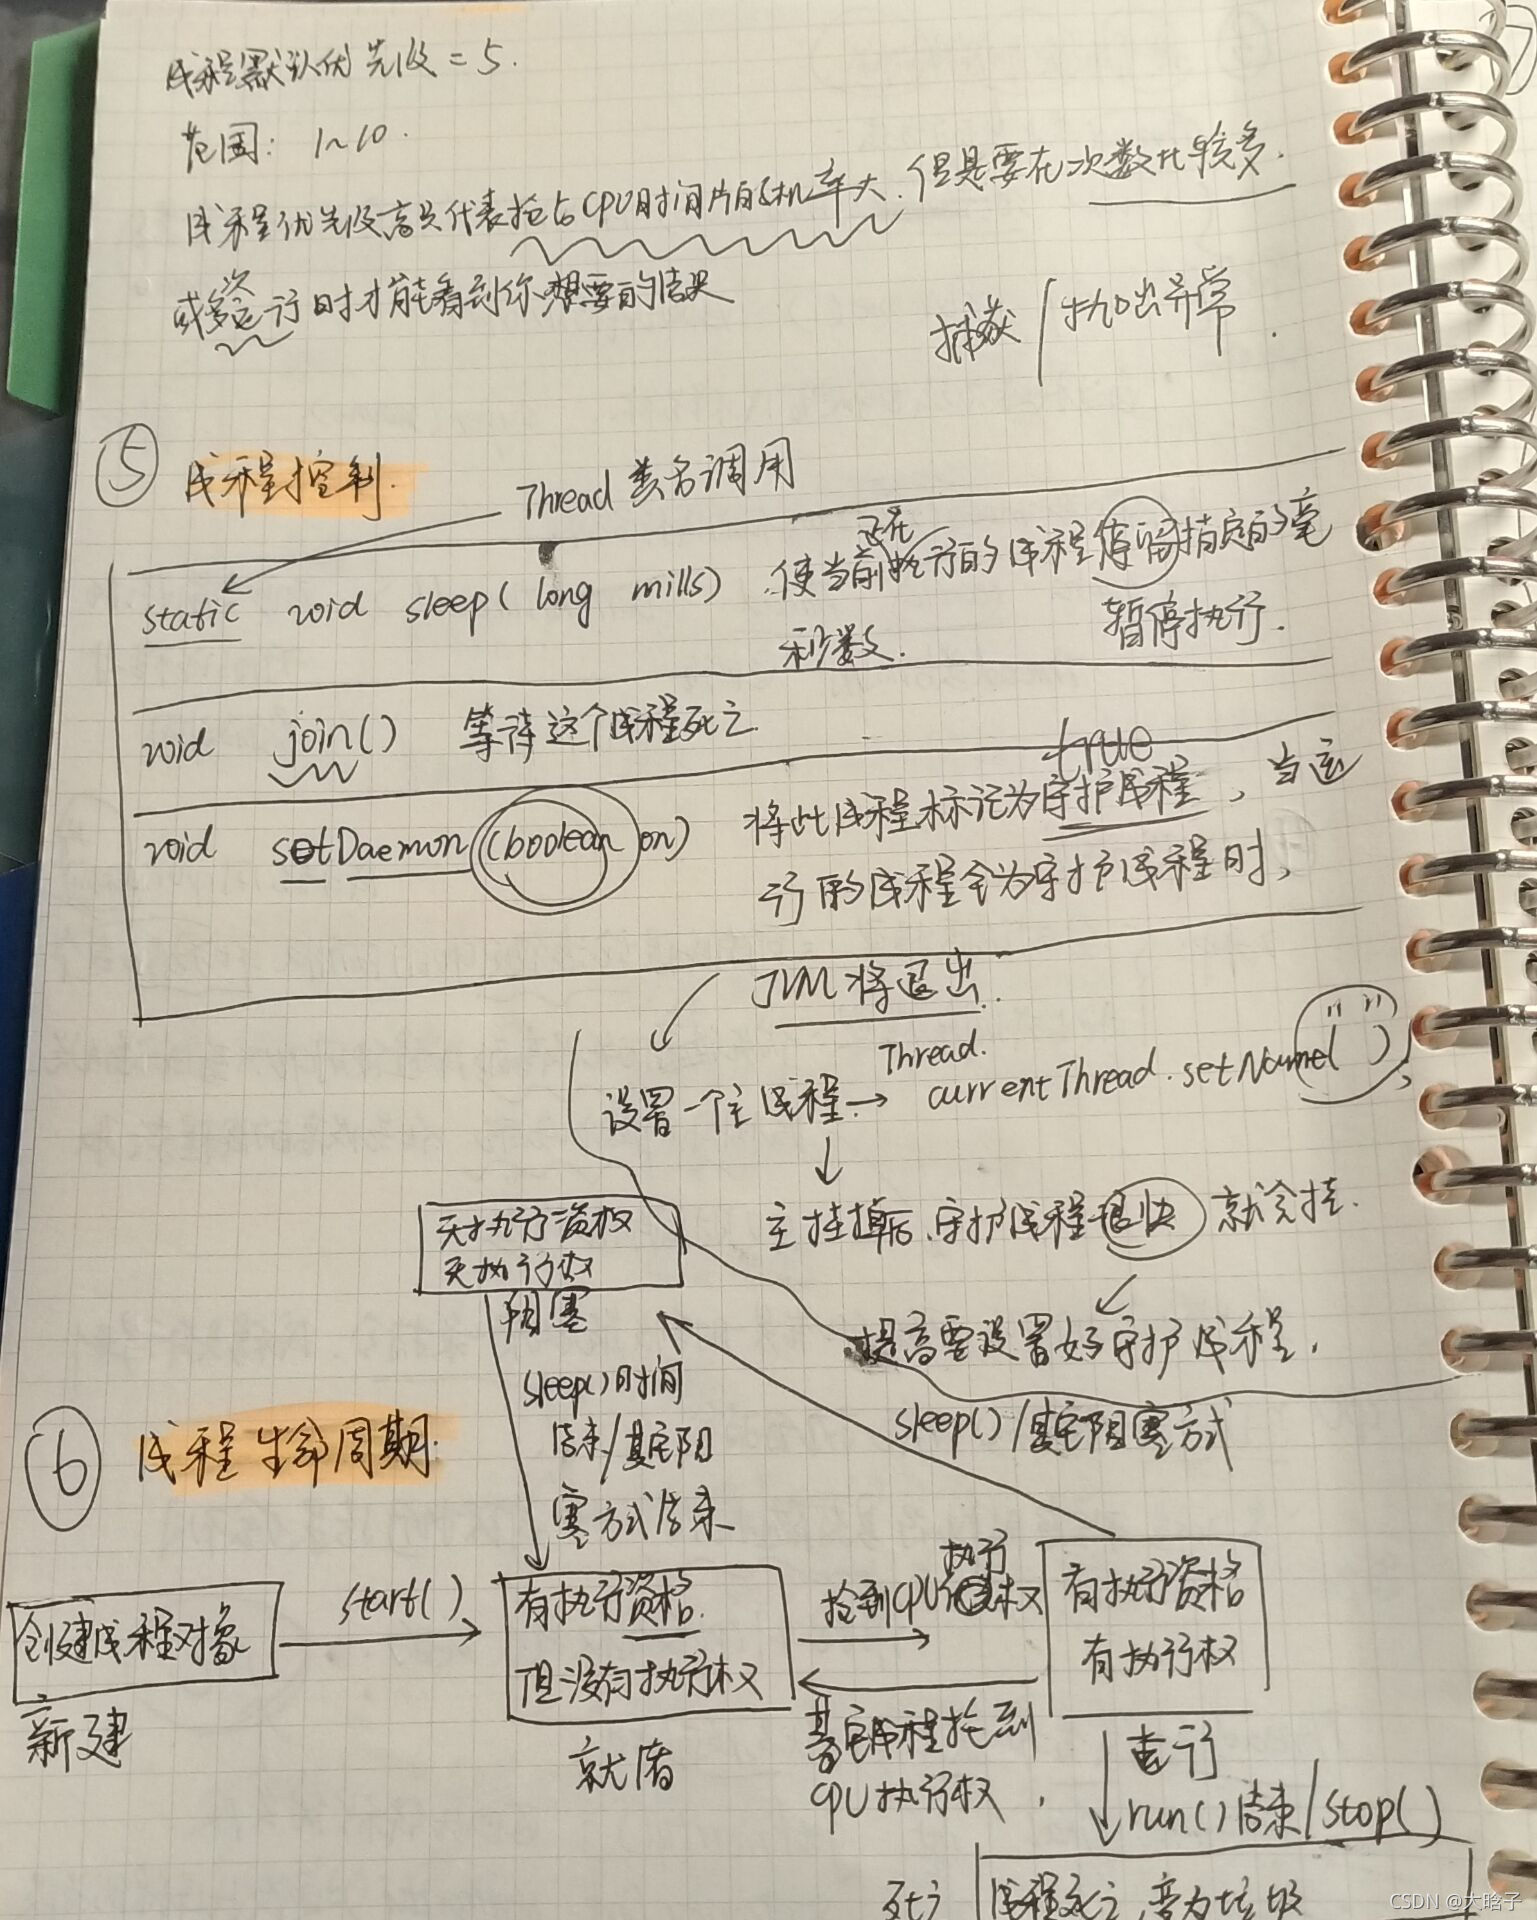 线程默认优先级 = 5.
范围: 1~10.
线程优先级高只代表抢占CPU时间片的机率大.但是要在次数比较多.
或多次运行时才能看到你想要的结果
捕获/抛出异常.
⑤ 线程控制.
Thread 类名调用
static void sleep( long mills) 使当前正在执行的线程停留指定的毫
秒数. 暂停执行.
void join() 等待这个线程死亡
true
void setDaemon (boolean on) 将此线程标记为守护线程, 当运
行的线程全为守护线程时,
JVM 将退出.
设置一个主线程. → Thread.
currentThread.setName( " " );
主挂掉后.守护线程很快就会挂.
提高要设置好守护线程.
无执行资格
无执行权
阻塞
sleep()时间
结束/其它阻
塞方式结束
sleep()/其它阻塞方式
⑥ 线程生命周期:
创建线程对象
新建
start()
有执行资格.
但没有执行权
就绪
抢到CPU执行权
其它线程抢到
CPU执行权.
有执行资格
有执行权
运行
run()结束/stop()
死亡
线程死亡,变为垃圾
CSDN @大晗子